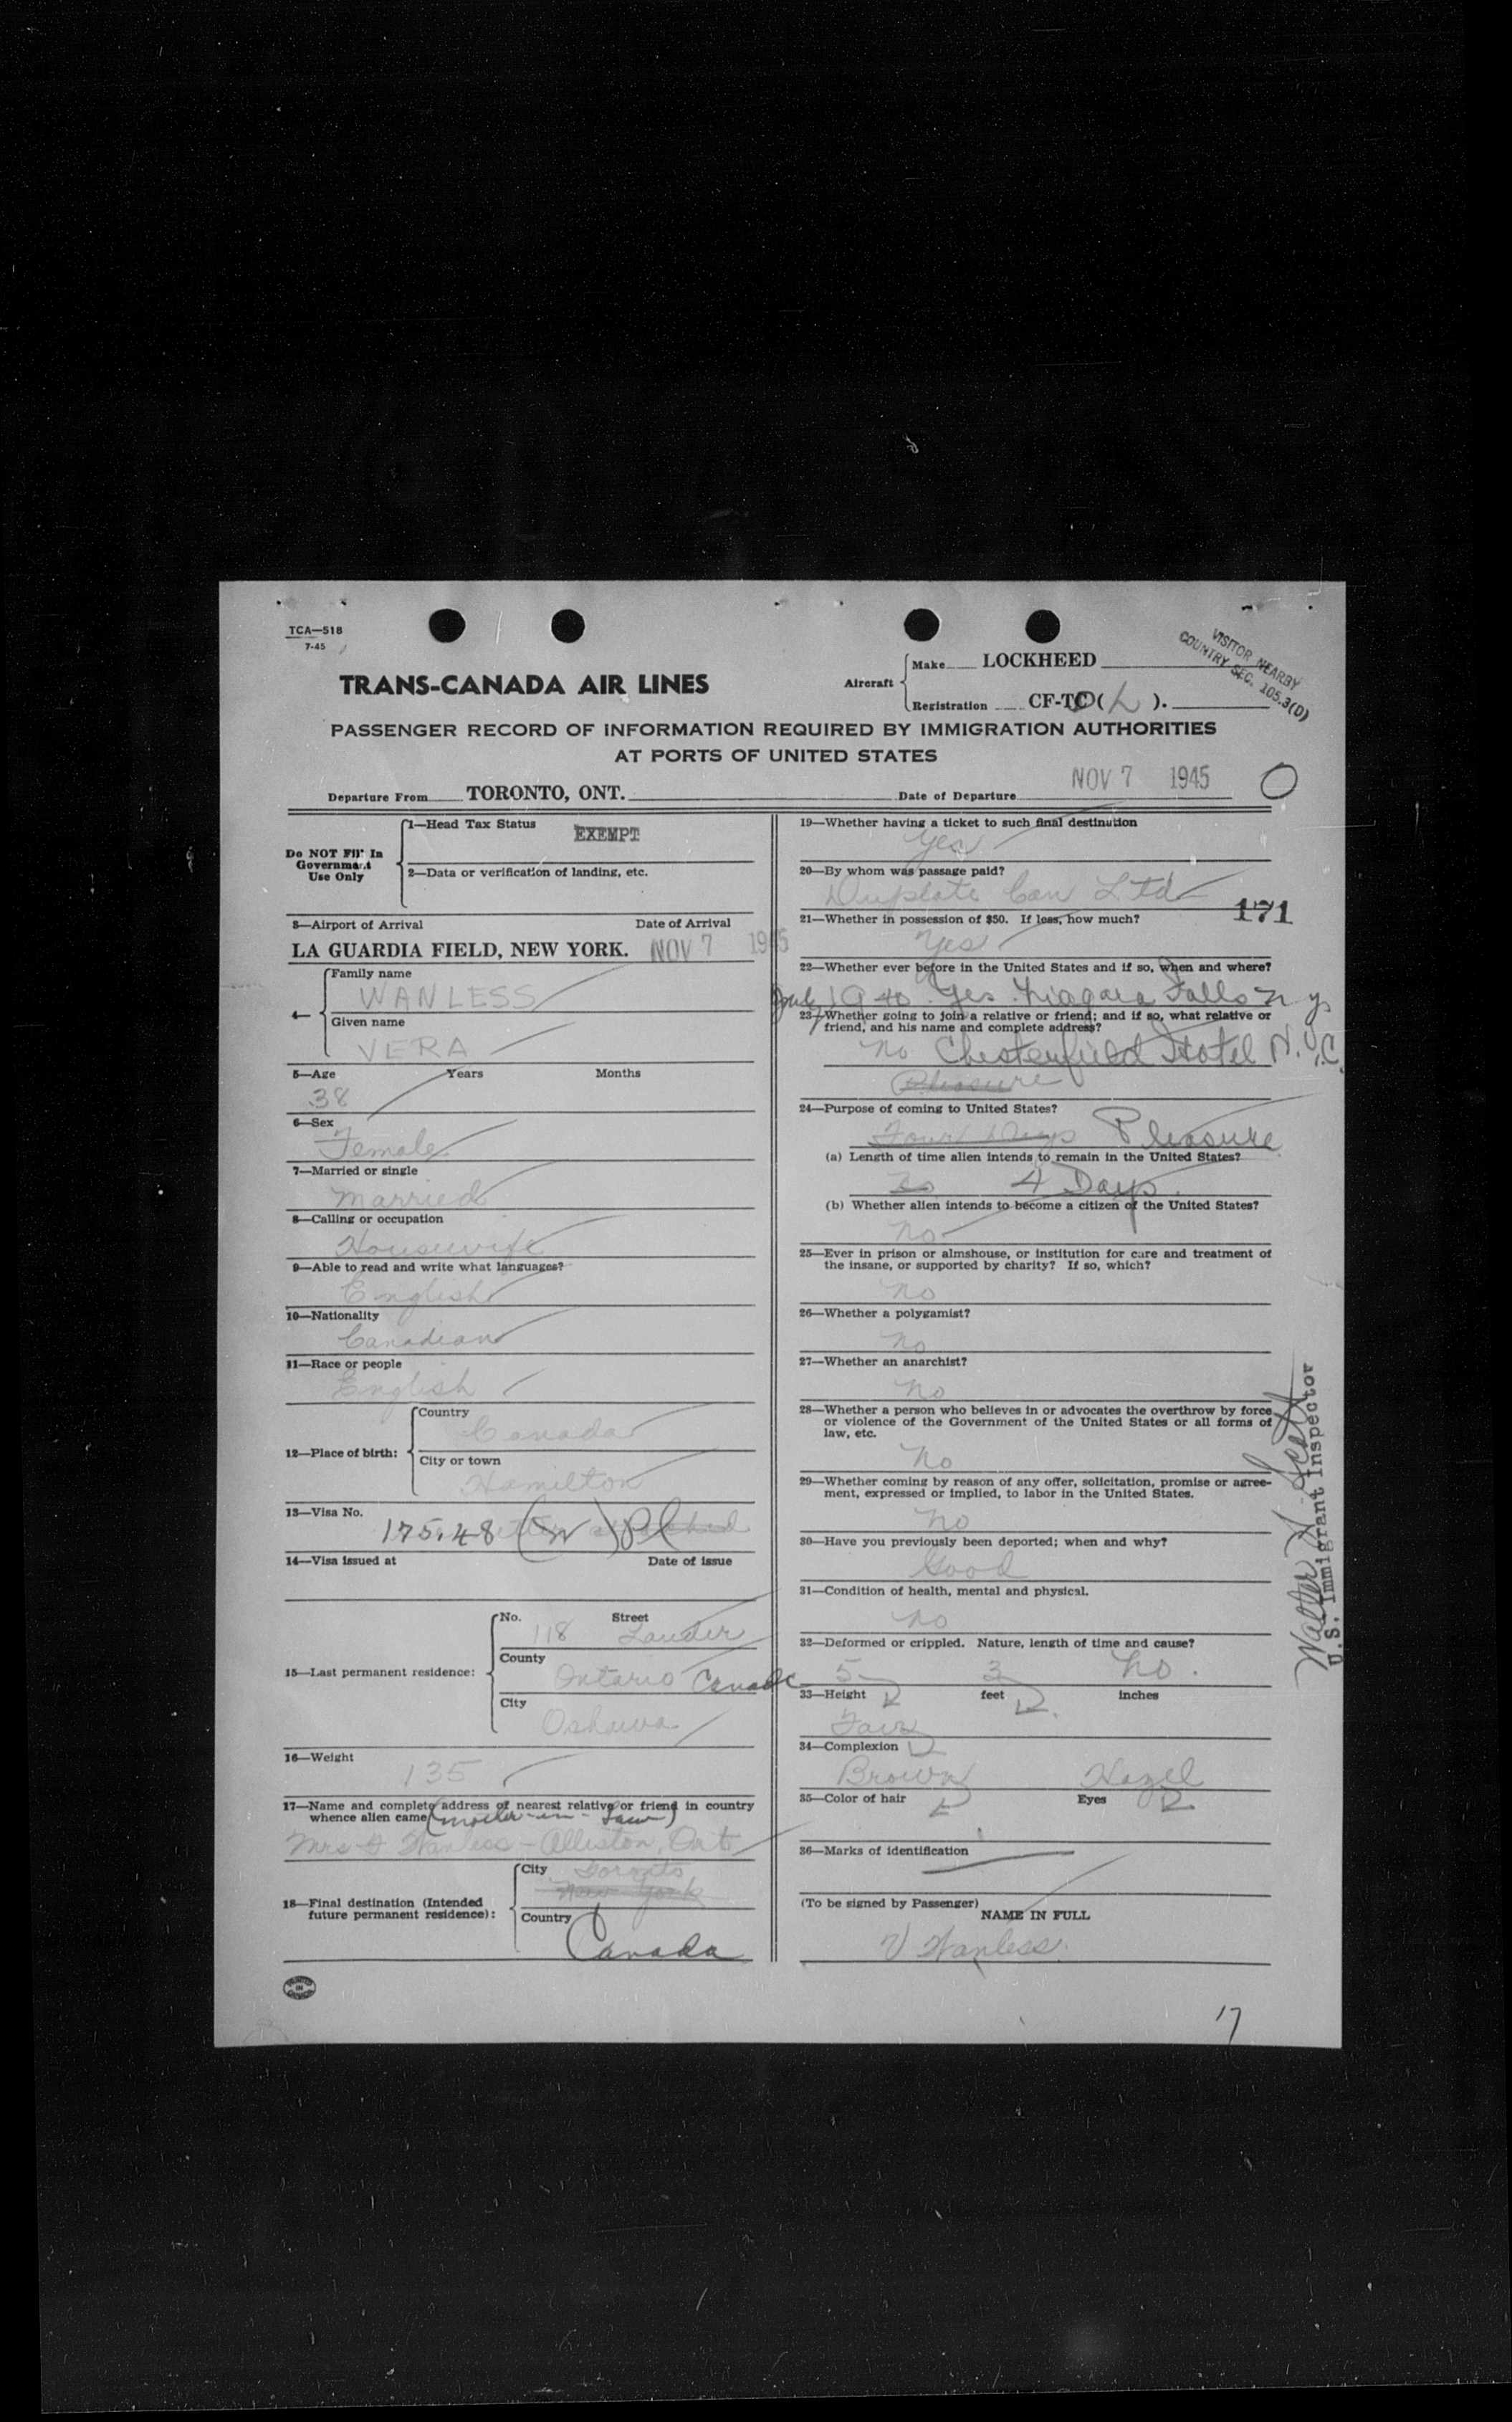 TCA—518
7-45
VISITOR NEARBY
COUNTRY SEC. 105.3(D)
TRANS-CANADA AIR LINES
Aircraft
Make LOCKHEED
Registration CF-TC ( L ).
PASSENGER RECORD OF INFORMATION REQUIRED BY IMMIGRATION AUTHORITIES
AT PORTS OF UNITED STATES
Departure From TORONTO, ONT.
Date of Departure NOV 7 1945
Do NOT Fill In
Government
Use Only
1—Head Tax Status EXEMPT
2—Data or verification of landing, etc.
3—Airport of Arrival Date of Arrival
LA GUARDIA FIELD, NEW YORK. NOV 7 1945
4— Family name
WANLESS
Given name
VERA
5—Age Years Months
38
6—Sex
Female
7—Married or single
Married
8—Calling or occupation
Housewife
9—Able to read and write what languages?
English
10—Nationality
Canadian
11—Race or people
English
12—Place of birth:
Country
Canada
City or town
Hamilton
13—Visa No.
175.48
14—Visa issued at Date of issue
15—Last permanent residence:
No. Street
118 Lauder
County
Ontario Canada
City
Oshawa
16—Weight
135
17—Name and complete address of nearest relative or friend in country
whence alien came (mother-in-law)
Mrs Wanless - Alliston, Ont
18—Final destination (Intended
future permanent residence):
City Toronto
New York
Country
Canada
19—Whether having a ticket to such final destination
Yes
20—By whom was passage paid?
Duplate Can Ltd
171
21—Whether in possession of $50. If less, how much?
Yes
22—Whether ever before in the United States and if so, when and where?
1940 Yes. Niagara Falls N Y
23—Whether going to join a relative or friend; and if so, what relative or
friend, and his name and complete address?
No Chesterfield Hotel N.Y.C.
Pleasure
24—Purpose of coming to United States?
Four Days Pleasure
(a) Length of time alien intends to remain in the United States?
No 4 Days.
(b) Whether alien intends to become a citizen of the United States?
No
25—Ever in prison or almshouse, or institution for care and treatment of
the insane, or supported by charity? If so, which?
No
26—Whether a polygamist?
No
27—Whether an anarchist?
No
28—Whether a person who believes in or advocates the overthrow by force
or violence of the Government of the United States or all forms of
law, etc.
No
29—Whether coming by reason of any offer, solicitation, promise or agree-
ment, expressed or implied, to labor in the United States.
No
30—Have you previously been deported; when and why?
Good
31—Condition of health, mental and physical.
No
32—Deformed or crippled. Nature, length of time and cause?
5 3 No.
33—Height feet inches
Fair
34—Complexion
Brown Hazel
35—Color of hair Eyes
36—Marks of identification
(To be signed by Passenger)
NAME IN FULL
V Wanless.
Walter Scott
U.S. Immigrant Inspector
17